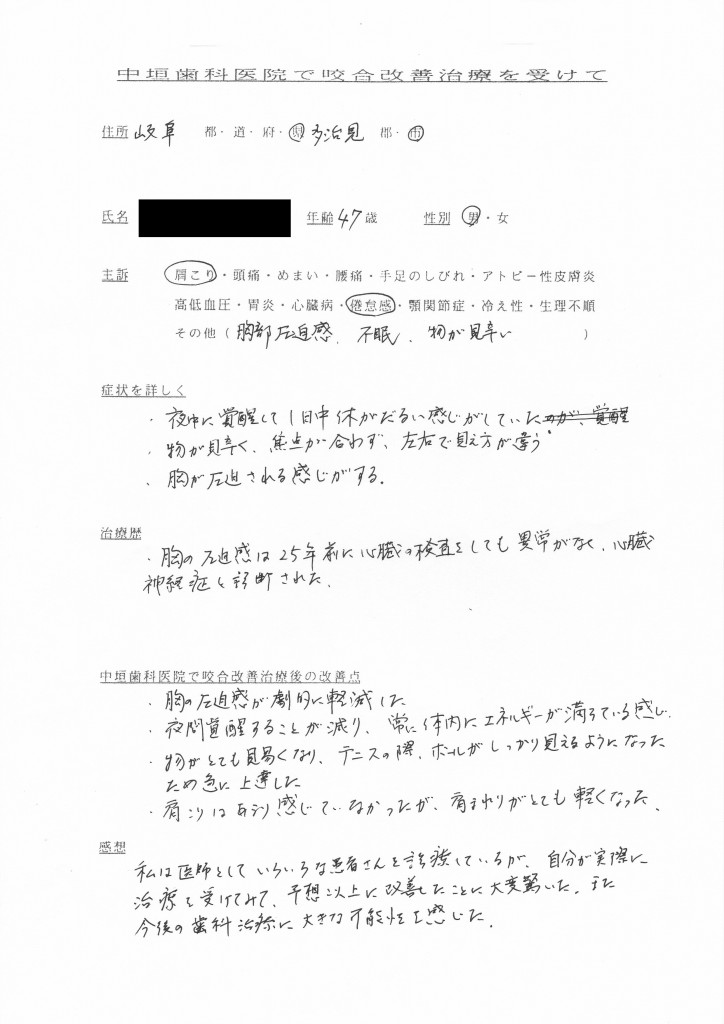 中垣歯科医院で咬合改善治療を受けて
住所 岐阜 都・道・府・県 多治見 郡・市
氏名 年齢 47 歳 性別 男・女
主訴 肩こり・頭痛・めまい・腰痛・手足のしびれ・アトピー性皮膚炎
高低血圧・胃炎・心臓病・倦怠感・顎関節症・冷え性・生理不順
その他（ 胸部圧迫感、不眠、物が見辛い ）
症状を詳しく
・夜中に覚醒して1日中体がだるい感じがしていたが、覚醒
・物が見辛く、焦点が合わず、左右で見え方が違う。
・胸が圧迫される感じがする。
治療歴
・胸の圧迫感は25年前に心臓の検査をしても異常がなく、心臓
神経症と診断された。
中垣歯科医院で咬合改善治療後の改善点
・胸の圧迫感が劇的に軽減した
・夜間覚醒することが減り、常に体内にエネルギーが満ちている感じ。
・物がとても見易くなり、テニスの際、ボールがしっかり見えるようになった
ため急に上達した
・肩こりはあまり感じていなかったが、肩まわりがとても軽くなった。
感想
私は医師としていろいろな患者さんを診療しているが、自分が実際に
治療を受けてみて、予想以上に改善したことに大変驚いた。また
今後の歯科治療に大きな可能性を感じた。